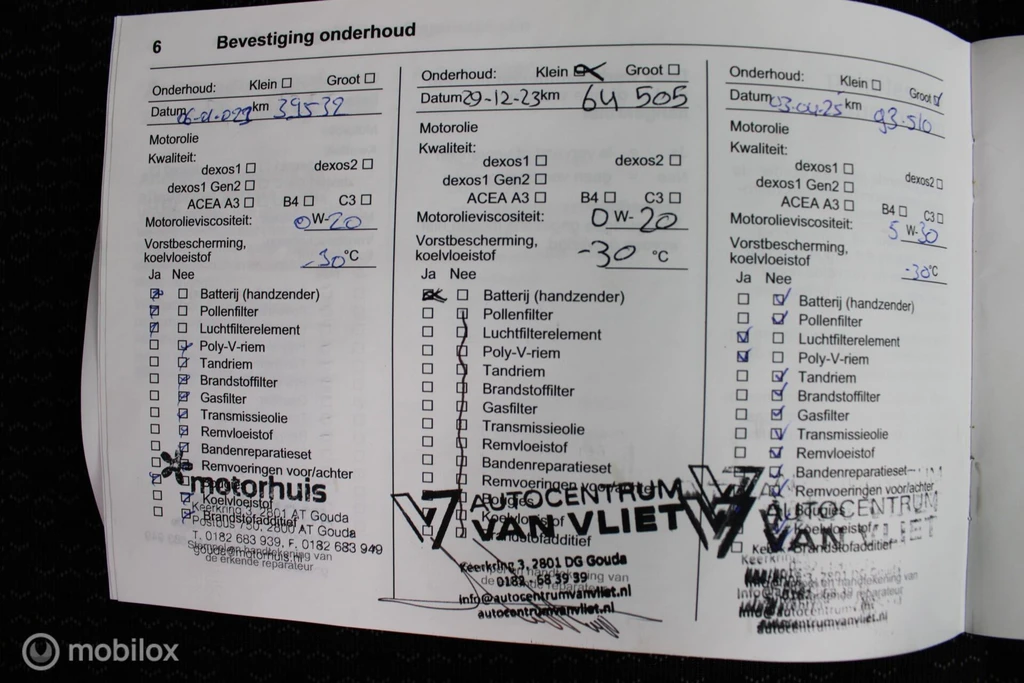 6 Bevestiging onderhoud
Onderhoud: Klein Groot
Datum 06-01-023 km 39532
Motorolie
Kwaliteit:
dexos1 dexos2
dexos1 Gen2
ACEA A3 B4 C3
Motorolieviscositeit: 0 W-20
Vorstbescherming,
koelvloeistof -30 °C
Ja Nee
Batterij (handzender)
Pollenfilter
Luchtfilterelement
Poly-V-riem
Tandriem
Brandstoffilter
Gasfilter
Transmissieolie
Remvloeistof
Bandenreparatieset
Remvoeringen voor/achter
motorhuis
Koelvloeistof
Keerkring 3, 2801 AT Gouda
Brandstofadditief
Postbus 750, 2800 AT Gouda
T. 0182 683 939, F. 0182 683 949
gouda@motorhuis.nl
de erkende reparateur
Onderhoud: Klein Groot
Datum 29-12-23 km 64 505
Motorolie
Kwaliteit:
dexos1 dexos2
dexos1 Gen2
ACEA A3 B4 C3
Motorolieviscositeit: 0 W-20
Vorstbescherming,
koelvloeistof -30 °C
Ja Nee
Batterij (handzender)
Pollenfilter
Luchtfilterelement
Poly-V-riem
Tandriem
Brandstoffilter
Gasfilter
Transmissieolie
Remvloeistof
Bandenreparatieset
Remvoeringen voor/achter
Bougies
AUTOCENTRUM
Koelvloeistof
VAN VLIET
Brandstofadditief
Keerkring 3, 2801 DG Gouda
0182 - 68 39 39
info@autocentrumvanvliet.nl
autocentrumvanvliet.nl
Onderhoud: Klein Groot
Datum 03-04-25 km 93-510
Motorolie
Kwaliteit:
dexos1 dexos2
dexos1 Gen2
ACEA A3 B4 C3
Motorolieviscositeit: 5 W-30
Vorstbescherming,
koelvloeistof -30 °C
Ja Nee
Batterij (handzender)
Pollenfilter
Luchtfilterelement
Poly-V-riem
Tandriem
Brandstoffilter
Gasfilter
Transmissieolie
Remvloeistof
Bandenreparatieset
Remvoeringen voor/achter
Bougies
AUTOCENTRUM
Koelvloeistof
VAN VLIET
Brandstofadditief
autocentrumvanvliet.nl
mobilox